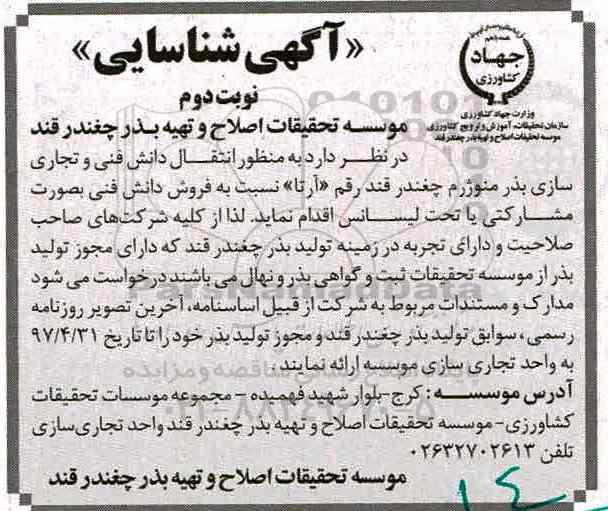 «آگهی شناسایی»
نوبت دوم
جهاد
کشاورزی
وزارت جهاد کشاورزی
سازمان تحقیقات، آموزش و ترویج کشاورزی
موسسه تحقیقات اصلاح و تهیه بذر چغندر قند
موسسه تحقیقات اصلاح و تهیه بذر چغندر قند
در نظر دارد به منظور انتقال دانش فنی و تجاری
سازی بذر منوژرم چغندر قند رقم «آرتا» نسبت به فروش دانش فنی بصورت
مشارکتی یا تحت لیسانس اقدام نماید. لذا از کلیه شرکت‌های صاحب
صلاحیت و دارای تجربه در زمینه تولید بذر چغندر قند که دارای مجوز تولید
بذر از موسسه تحقیقات ثبت و گواهی بذر و نهال می باشند درخواست می شود
مدارک و مستندات مربوط به شرکت از قبیل اساسنامه، آخرین تصویر روزنامه
رسمی، سوابق تولید بذر چغندر قند و مجوز تولید بذر خود را تا تاریخ ۹۷/۴/۳۱
به واحد تجاری سازی موسسه ارائه نمایند.
آدرس موسسه: کرج-بلوار شهید فهمیده - مجموعه موسسات تحقیقات
کشاورزی-موسسه تحقیقات اصلاح و تهیه بذر چغندر قند واحد تجاری‌سازی
تلفن ۰۲۶۳۲۷۰۲۶۱۳
موسسه تحقیقات اصلاح و تهیه بذر چغندر قند
۱۴